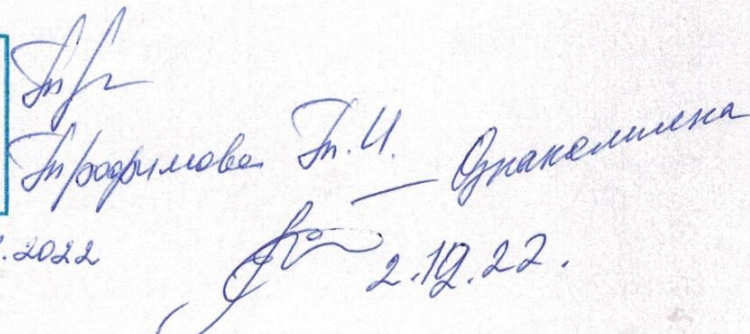 Трофимова Т.И. — Ознакомлена
.2022
2.12.22.